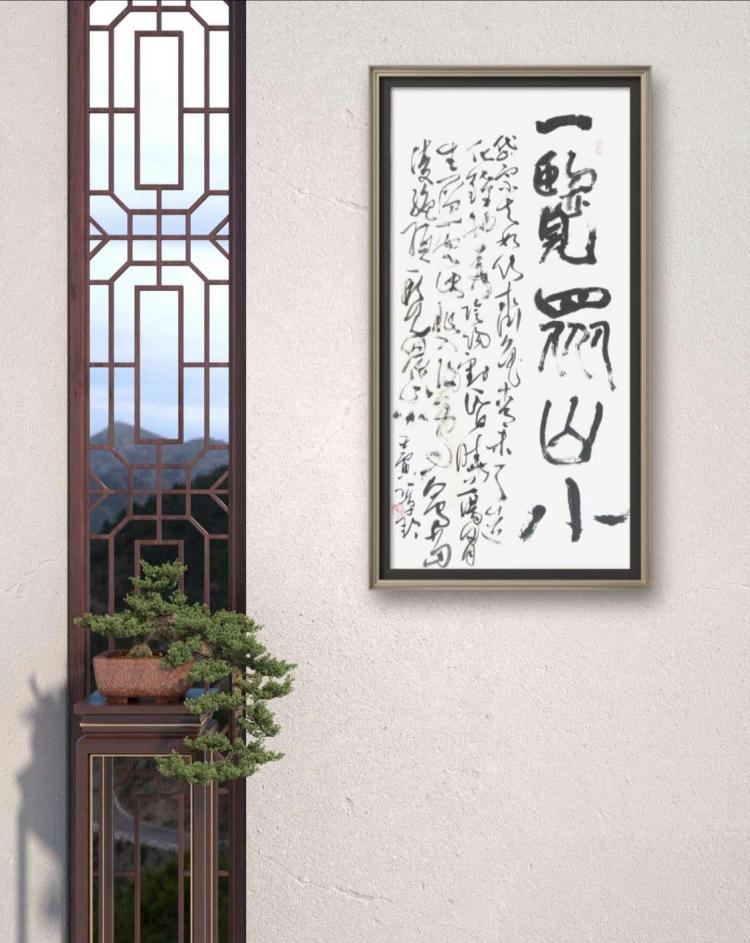 一覽眾山小
岱宗夫如何齊魯青未了造
化鍾神秀陰陽割昏曉蕩胸
生層雲決眥入歸鳥會當
凌絕頂一覽眾山小 壬寅